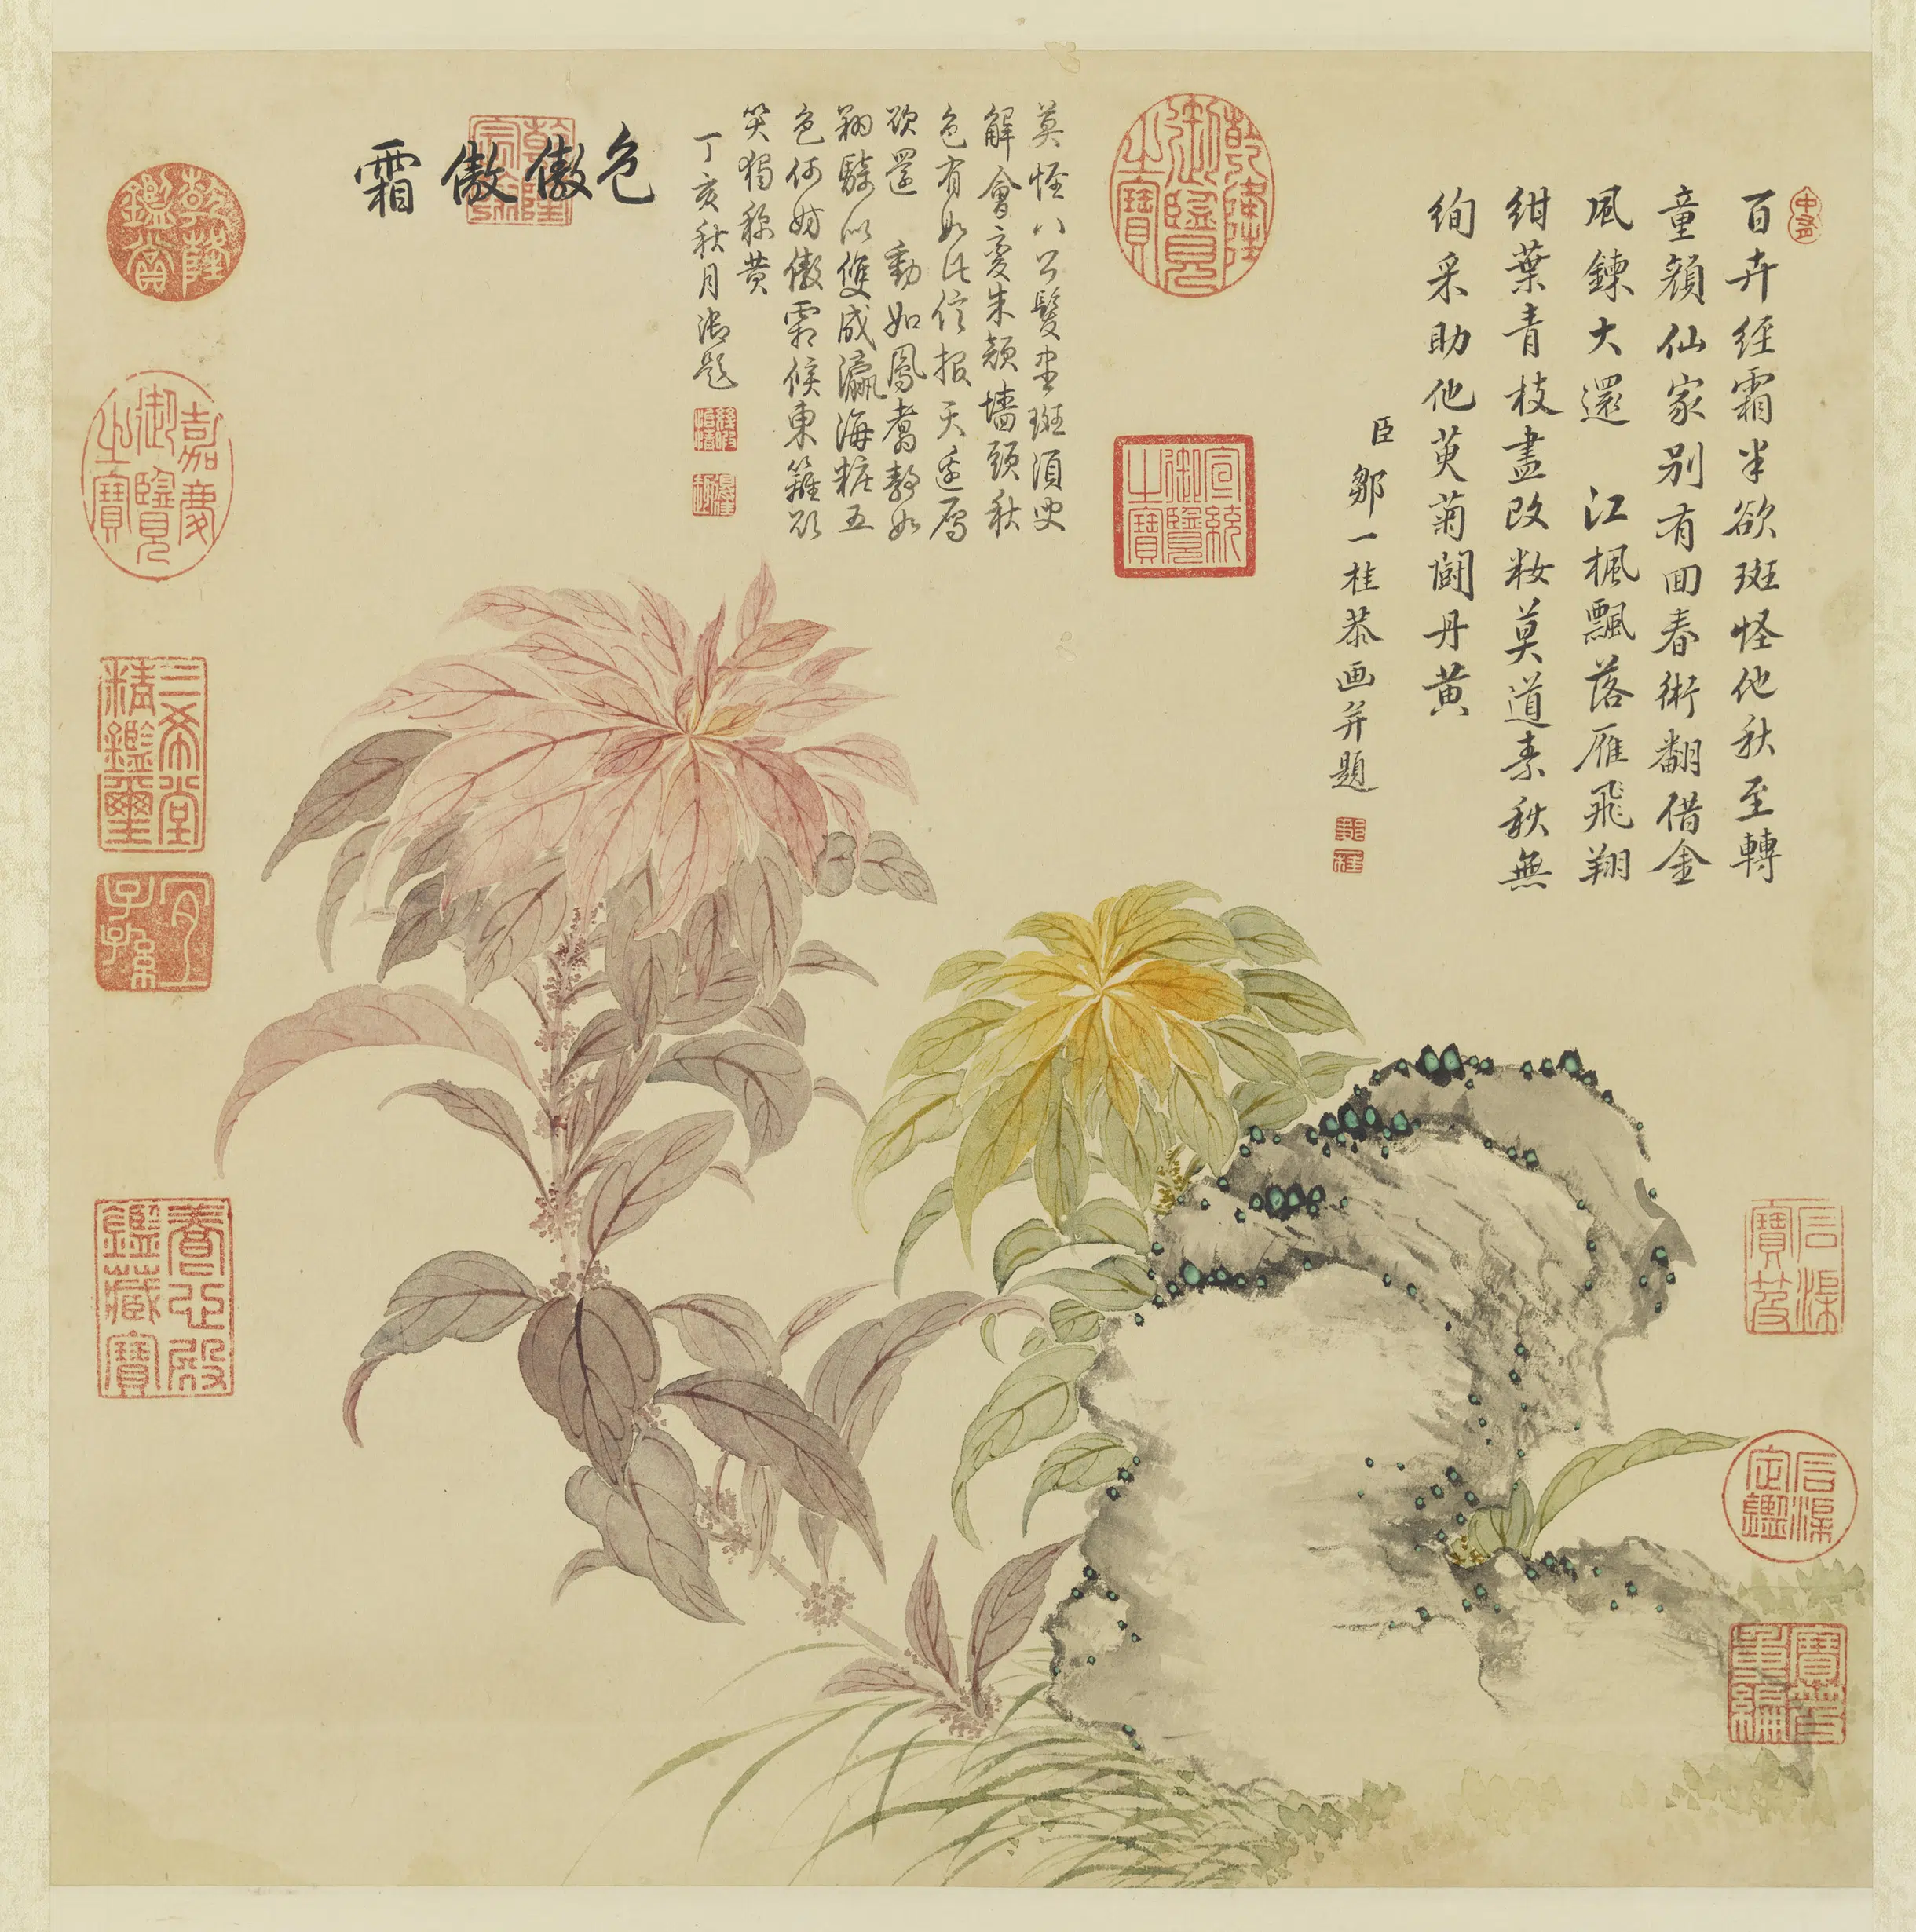 百卉經霜半欲斑怪他秋至轉
童顏仙家別有回春術翻借金
風鍊大還 江楓飄落雁飛翔
紺葉青枝盡改妝莫道素秋無
絢采助他萸菊鬭丹黃
臣鄒一桂恭画并題
乾隆御覽之寶
宣統御覽之寶
莫怪八公髮盡斑須臾
解會變朱顏墻頭秋
色有如此信报天邊雁
欲還 動如鳳翥靜如
翔以雙成瀛海粧五
色何妨傲霜候東籬
笑獨稱黃
丁亥秋月御題
色傲傲霜
乾隆宸翰
乾隆鑑賞
嘉慶御覽之寶
三希堂精鑑璽
宜子孫
養心殿鑑藏寶
石渠寶笈
石渠定鑑
寶笈重編